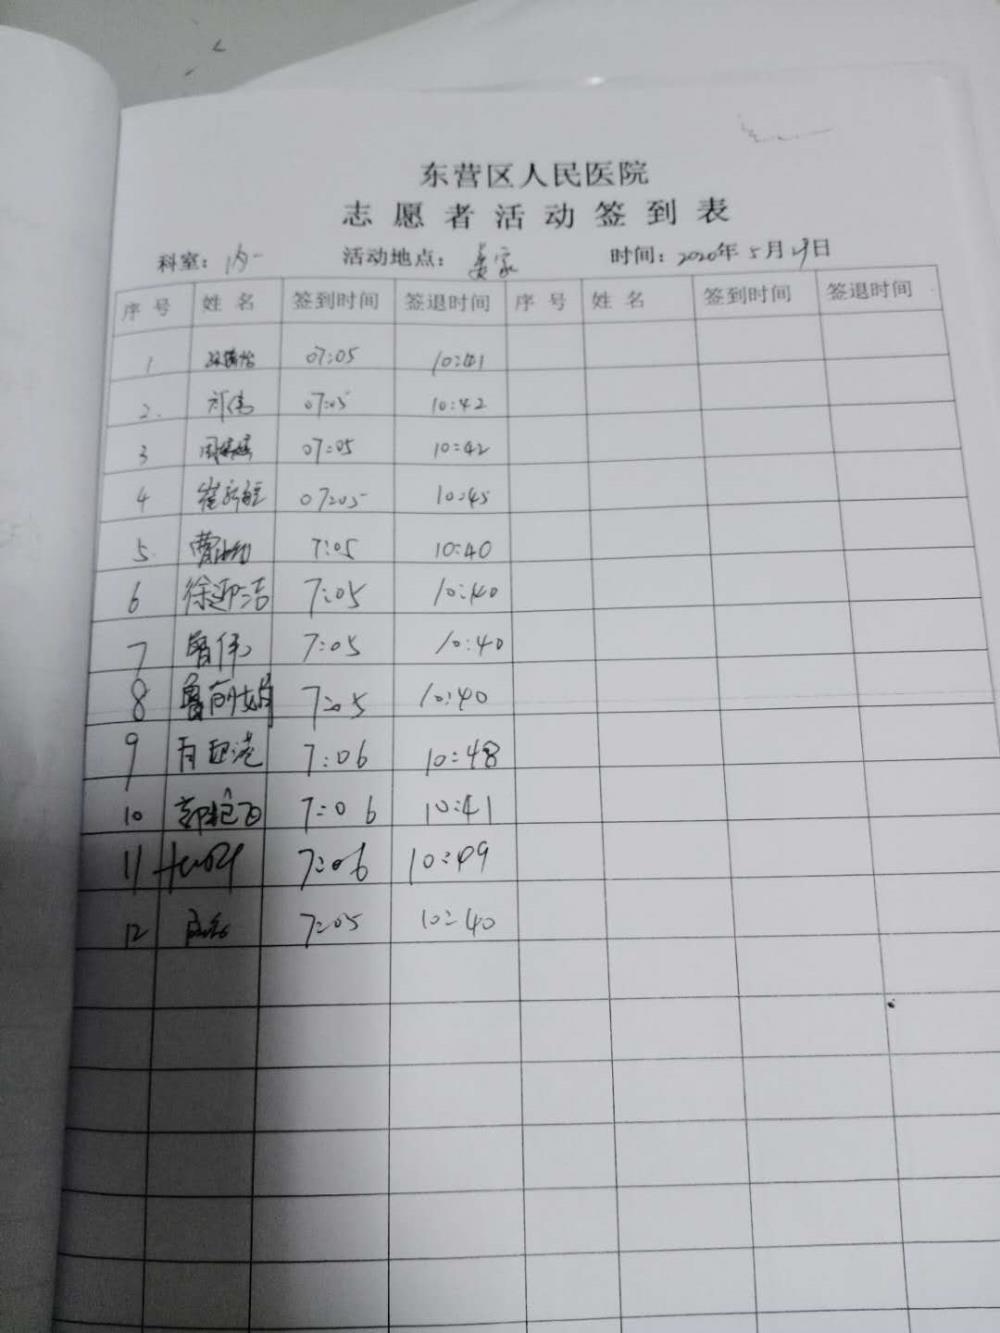 东营区人民医院
志愿者活动签到表
科室：内一 活动地点：姜家 时间：2020年5月 日
序号 姓名 签到时间 签退时间 序号 姓名 签到时间 签退时间
1 07:05 10:41
2. 祁伟 07:05 10:42
3 07:05 10:42
4 崔 07:05 10:45
5. 曹 7:05 10:40
6 徐迎洁 7:05 10:40
7 鲁伟 7:05 10:40
8 7:05 10:40
9 7:06 10:48
10 7:06 10:41
11 7:06 10:49
12 7:05 10:40